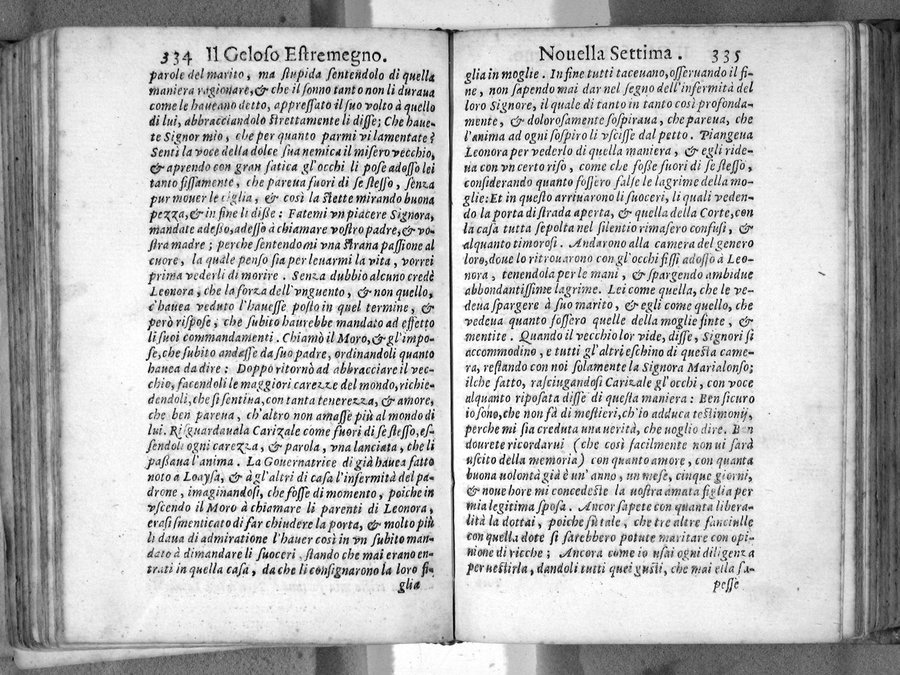 334 Il Geloso Estremegno.
parole del marito, ma stupida sentendolo di quella
maniera ragionare, & che il sonno tanto non li duraua
come le haueano detto, appressato il suo volto à quello
di lui, abbracciandolo strettamente li disse; Che haue-
te Signor mio, che per quanto parmi vi lamentate?
Sentì la voce della dolce sua nemica il misero vecchio,
& aprendo con gran fatica gl'occhi li pose adosso lei
tanto fissamente, che pareua fuori di se stesso, senza
pur mouer le ciglia, & così la stette mirando buona
pezza, & in fine li disse: Fatemi vn piacere Signora,
mandate adesso, adesso à chiamare vostro padre, & vo-
stra madre; perche sentendomi vna strana passione al
cuore, la quale penso sia per leuarmi la vita, vorrei
prima vederli di morire. Senza dubbio alcuno credè
Leonora, che la forza dell'vnguento, & non quello,
c'hauea veduto l'hauesse posto in quel termine, &
però rispose, che subito haurebbe mandato ad effetto
li suoi commandamenti. Chiamò il Moro, & gl'impo-
se, che subito andasse da suo padre, ordinandoli quanto
hauea da dire: Doppò ritornò ad abbracciare il vec-
chio, facendoli le maggiori carezze del mondo, richie-
dendoli, che si sentina, con tanta tenerezza, & amore,
che ben pareua, ch'altro non amasse più al mondo di
lui. Risguardauala Carizale come fuori di se stesso, es-
sendoli ogni carezza, & parola, vna lanciata, che li
passaua l'anima. La Gouernatrice di già hauea fatto
noto a Loaysa, & à gl'altri di casa l'infermità del pa-
drone, imaginandosi, che fosse di momento, poiche in
vscendo il Moro à chiamare li parenti di Leonora,
erasi smenticato di far chiudere la porta, & molto più
li daua di admiratione l'hauer così in vn subito manda-
to à dimandare li suoceri, stando che mai erano en-
trati in quella casa, da che li consignarono la loro fi-
glia
Nouella Settima. 335
glia in moglie. In fine tutti taceuano, osseruando il fi-
ne, non sapendo mai dar nel segno dell'infermità del
loro Signore, il quale di tanto in tanto così profonda-
mente, & dolorosamente sospiraua, che pareua, che
l'anima ad ogni sospiro li vscisse dal petto. Piangeua
Leonora per vederlo di quella maniera, & egli ride-
ua con vn certo riso, come che fosse fuori di se stesso,
considerando quanto fossero false le lagrime della mo-
glie: Et in questo arriuarono li suoceri, li quali veden-
do la porta di strada aperta, & quella della Corte, con
la casa tutta sepolta nel silentio rimasero confusi, &
alquanto timorosi. Andarono alla camera del genero
loro, doue lo ritrouarono con gl'occhi fissi adosso à Leo-
nora, tenendola per le mani, & spargendo ambidue
abbondantissime lagrime. Lei come quella, che le ve-
deua spargere à suo marito, & egli come quello, che
vedeua quanto fossero quelle della moglie finte, &
mentite. Quando il vecchio lor vide, disse, Signori si
accommodino, e tutti gl'altri eschino di questa came-
ra, restando con noi solamente la Signora Marialonso;
ilche fatto, rasciugandosi Carizale gl'occhi, con voce
alquanto riposata disse di questa maniera: Ben sicuro
io sono, che non fà di mestieri, ch'io adduca testimonij,
perche mi sia creduta una uerità, che uoglio dire. Ben
dourete ricordarui (che così facilmente non ui sarà
uscito della memoria) con quanto amore, con quanta
buona uolontà già è un'anno, un mese, cinque giorni,
& noue hore mi concedeste la uostra amata figlia per
mia legitima sposa. Ancor sapete con quanta libera-
lità la dottai, poiche fù tale, che tre altre fanciulle
con quella dote si sarebbero potute maritare con opi-
nione di ricche; Ancora come io usai ogni diligenza
per uestirla, dandoli tutti quei gusti, che mai ella sa-
pesse